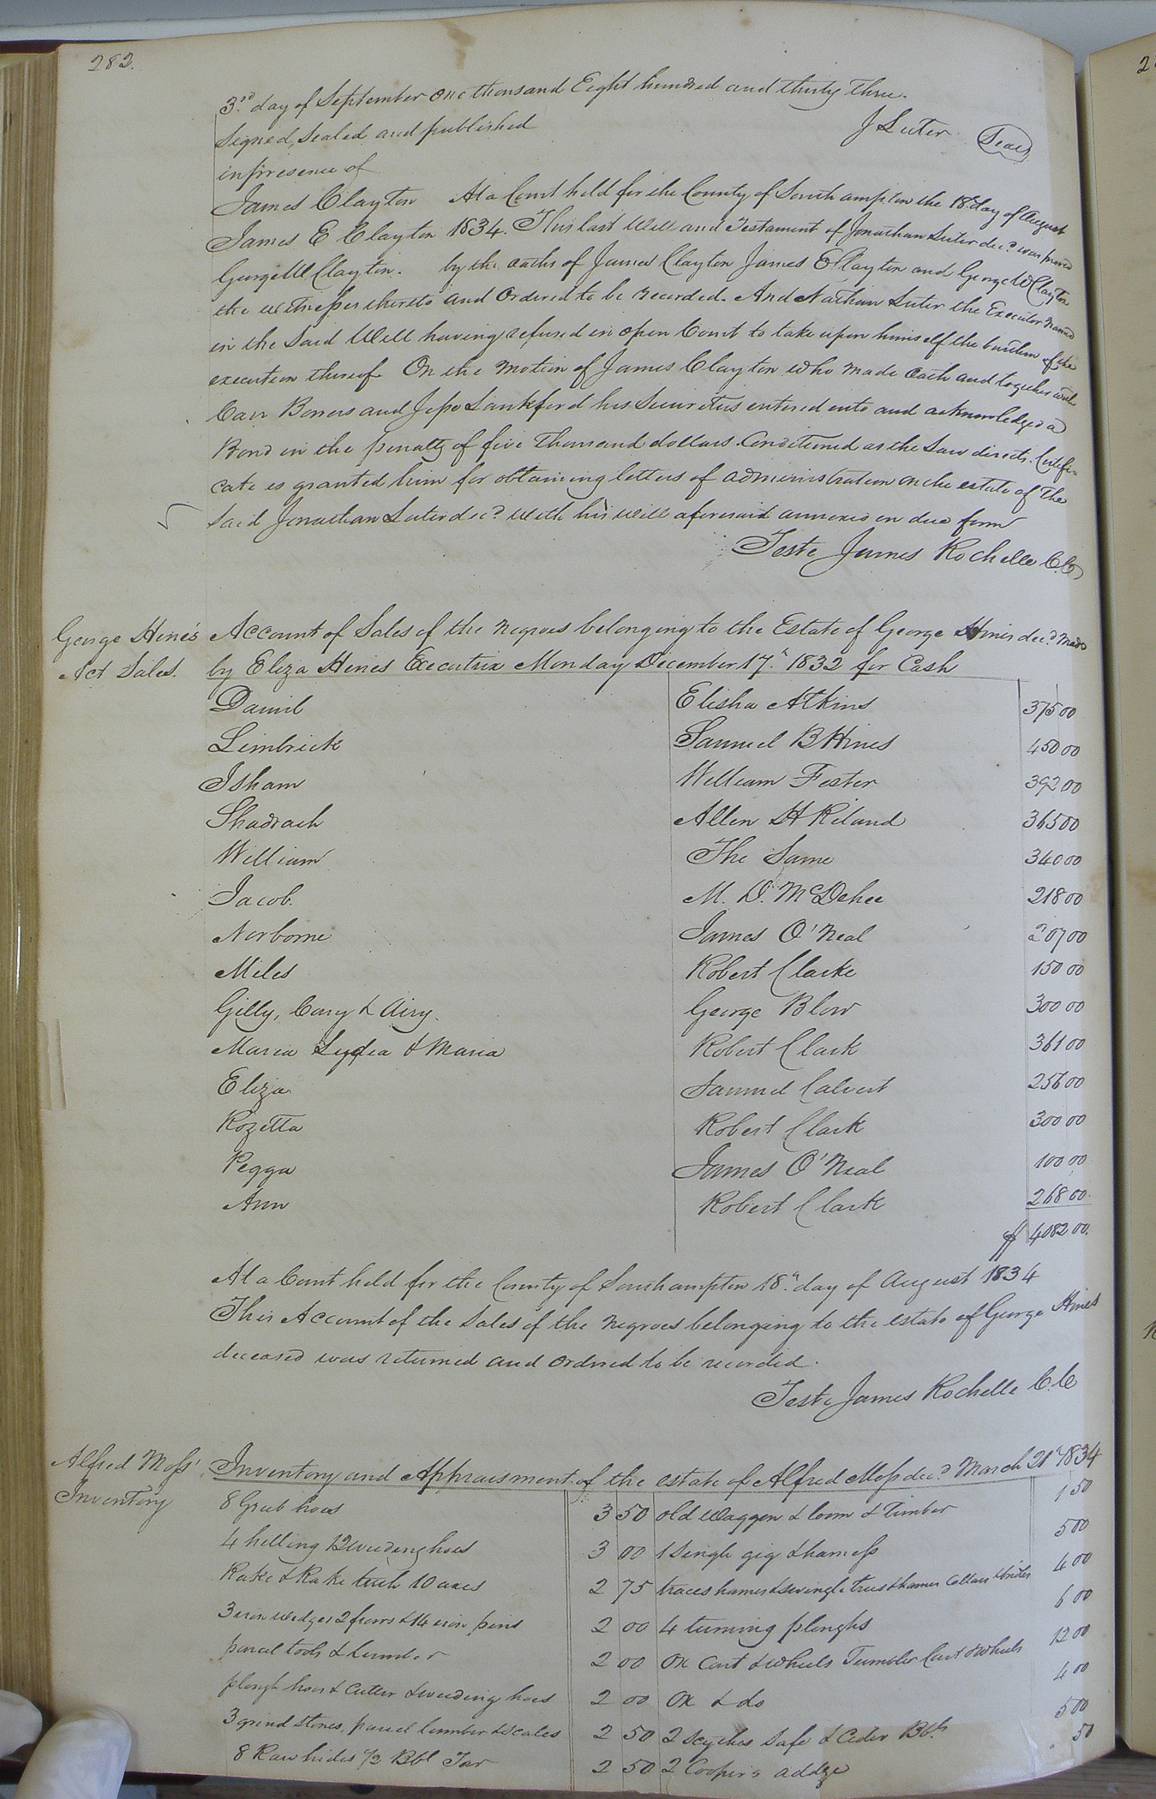 282.
3rd day of September One thousand Eight hundred and thirty three.
Signed, Sealed and published J Luter Seal
in presence of
James Clayton At a Court held for the County of Southampton the 18th day of August
James E Clayton 1834. This last Will and Testament of Jonathan Luter decd was proved
George W Clayton. by the oaths of James Clayton James E Clayton and George W Clayton
the witnesses thereto and Ordered to be recorded. And Nathan Luter the Executor named
in the said Will having refused in open Court to take upon himself the burthen of the
execution thereof On the motion of James Clayton who made Oath and together with
Carr Bowers and Jesse Lankford his Securities entered into and acknowledged a
Bond in the penalty of five thousand dollars Conditioned as the Law directs. Certifi-
cate is granted him for obtaining letters of administration on the estate of the
said Jonathan Luter decd with his will aforesaid annexed in due form
Teste James Rochelle C.C.
George Hines Account of Sales of the negroes belonging to the Estate of George Hines decd made
Act Sales. by Eliza Hines Executrix Monday December 17th 1832 for Cash
Daniel Elisha Atkins 375 00
Limbrick Samuel B Hines 450 00
Isham William Foster 392 00
Shadrach Allen H Riland 365 00
William The Same 340 00
Jacob. M. D. McDehee 218 00
Norborne James O'Neal 207 00
Miles Robert Clarke 150 00
Gilly, Cary & Airy. George Blow 300 00
Maria Lydia & Maria Robert Clark 361 00
Eliza Samuel Calvert 256 00
Rozetta Robert Clark 300 00
Pegga James O'Neal 100 00
Ann Robert Clark 268 00
$ 4082 00.
At a Court held for the County of Southampton 18th day of August 1834
This Account of the Sales of the negroes belonging to the estate of George Hines
deceased was returned and ordered to be recorded.
Teste James Rochelle C.C
Alfred Moss' Inventory and Appraisment of the estate of Alfred Moss decd March 21st 1834
Inventory 8 Grub hoes 3 50 old Waggon & loom & timber 1 50
4 hilling 12 weeding hoes 3 00 1 Single gig & harness 5 00
Rake & Rake teeth 10 axes 2 75 traces hames & swingle trees & hames Collars & bridles 4 00
3 iron wedges 2 frows & 14 iron pins 2 00 4 turning ploughs 6 00
parcel tools & lumber 2 00 Ox Cart & wheels Tumbler Cart & wheels 12 00
plough hoes & Cutter & weeding hoes 2 00 Ox & do 4 00
3 grind stones, parcel lumber & scales 2 50 2 Scythes Safe & Cider Bbls 5 00
8 Raw hides 1/2 Bbl Tar 2 50 2 Coopers addze 50